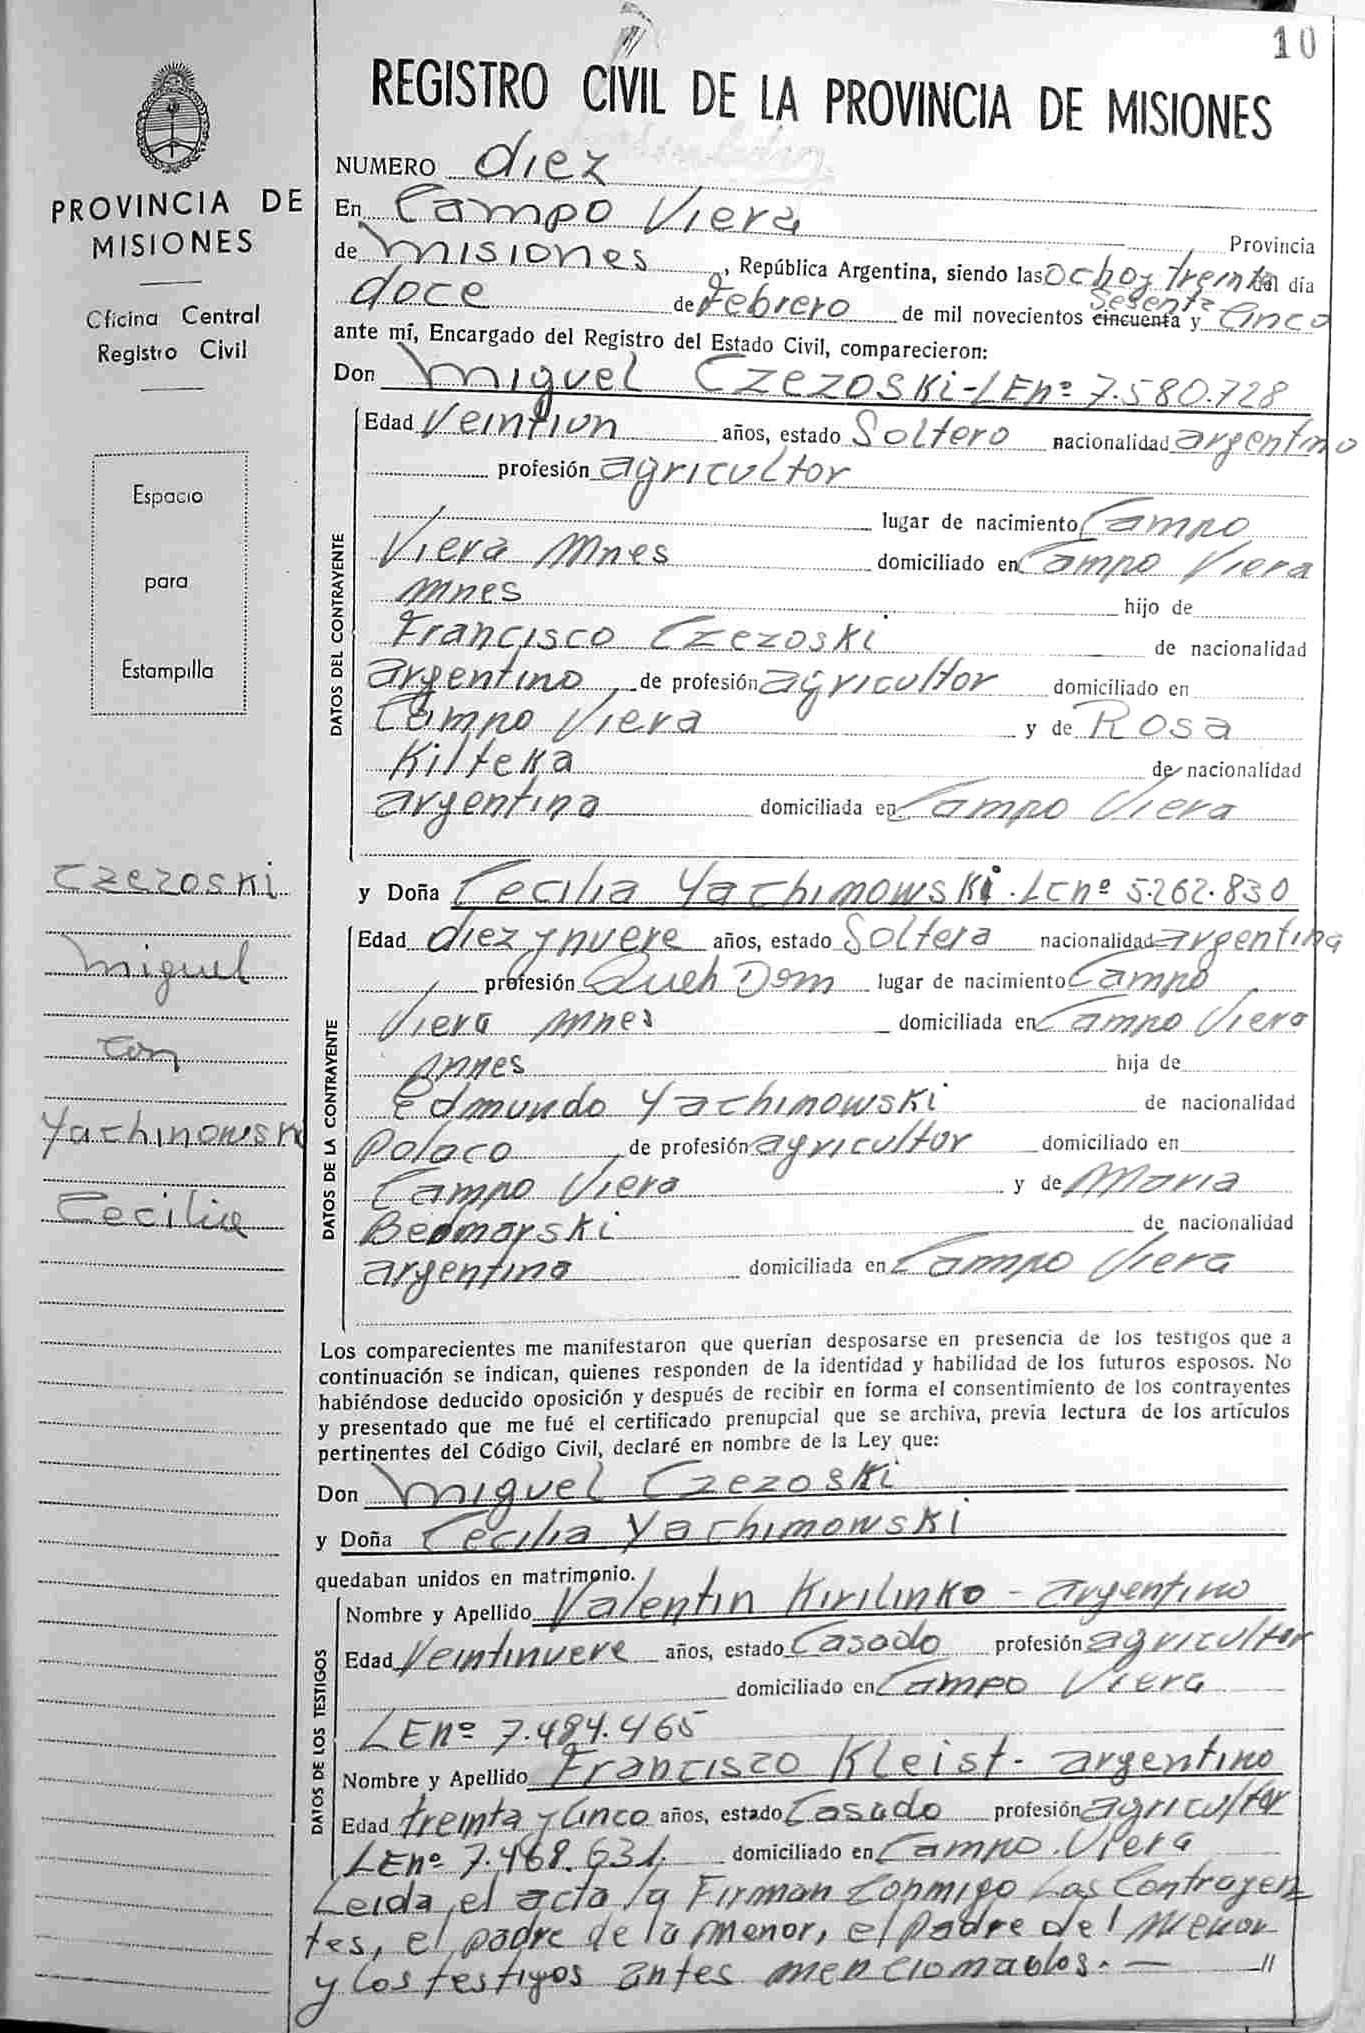 10
REGISTRO CIVIL DE LA PROVINCIA DE MISIONES
PROVINCIA DE
MISIONES
Oficina Central
Registro Civil
Espacio
para
Estampilla
Czezoski
Miguel
con
Yachinowski
Cecilia
NUMERO diez
En Campo Viera Provincia
de Misiones, República Argentina, siendo las ocho y treinta del día
doce de Febrero de mil novecientos cincuenta sesenta y Cinco
ante mí, Encargado del Registro del Estado Civil, comparecieron:
Don Miguel Czezoski - LEnº 7.580.728
DATOS DEL CONTRAYENTE
Edad Veintiun años, estado Soltero nacionalidad argentino
profesión agricultor
lugar de nacimiento Campo
Viera Mnes domiciliado en Campo Viera
Mnes hijo de
Francisco Czezoski de nacionalidad
argentino, de profesión agricultor domiciliado en
Campo Viera y de Rosa
Kilteka de nacionalidad
argentina domiciliada en Campo Viera
y Doña Cecilia Yachimowski. LCnº 5.262.830
DATOS DE LA CONTRAYENTE
Edad diez y nueve años, estado Soltera nacionalidad argentina
profesión Queh Dom lugar de nacimiento Campo
Viera Mnes domiciliada en Campo Viera
Mnes hija de
Edmundo Yachimowski de nacionalidad
polaco, de profesión agricultor domiciliado en
Campo Viera y de Maria
Bedmarski de nacionalidad
argentina domiciliada en Campo Viera
Los comparecientes me manifestaron que querían desposarse en presencia de los testigos que a
continuación se indican, quienes responden de la identidad y habilidad de los futuros esposos. No
habiéndose deducido oposición y después de recibir en forma el consentimiento de los contrayentes
y presentado que me fué el certificado prenupcial que se archiva, previa lectura de los artículos
pertinentes del Código Civil, declaré en nombre de la Ley que:
Don Miguel Czezoski
y Doña Cecilia Yachimowski
quedaban unidos en matrimonio.
DATOS DE LOS TESTIGOS
Nombre y Apellido Valentin Kirilinko - argentino
Edad Veintinueve años, estado Casado profesión agricultor
domiciliado en Campo Viera
LEnº 7.484.465
Nombre y Apellido Francisco Kleist - argentino
Edad treinta y cinco años, estado Casado profesión agricultor
LEnº 7.468.631. domiciliado en Campo Viera
Leida el acta la Firman Conmigo Los Contrayen
tes, el padre de la menor, el padre del menor
y los testigos antes mencionados. — "